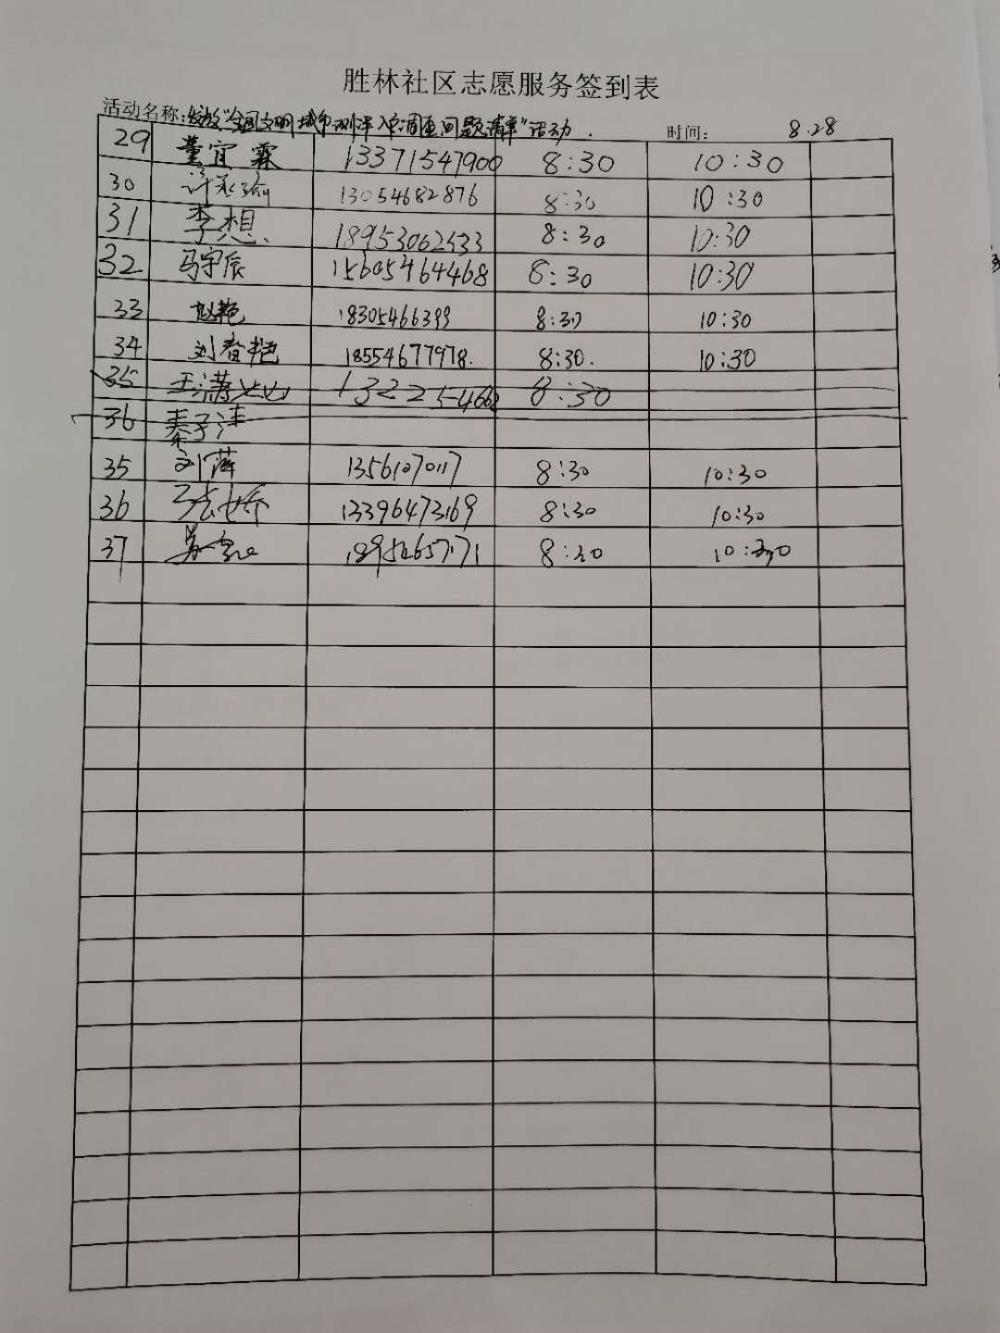 胜林社区志愿服务签到表
活动名称:发放“全国文明城市测评入户调查问题清单”活动. 时间: 8.28
29 董宜霖 13371547900 8:30 10:30
30 许 瑜 13054682876 8:30 10:30
31 李想 18953062533 8:30 10:30
32 马宇辰 15605464468 8:30 10:30
33 赵艳 18305466399 8:30 10:30
34 刘春艳 18554677978. 8:30. 10:30
35 王潇 13225466 8:30
36 秦子沣
35 刘萍 13561070117 8:30 10:30
36 张娇 13396473169 8:30 10:30
37 8:30 10:30